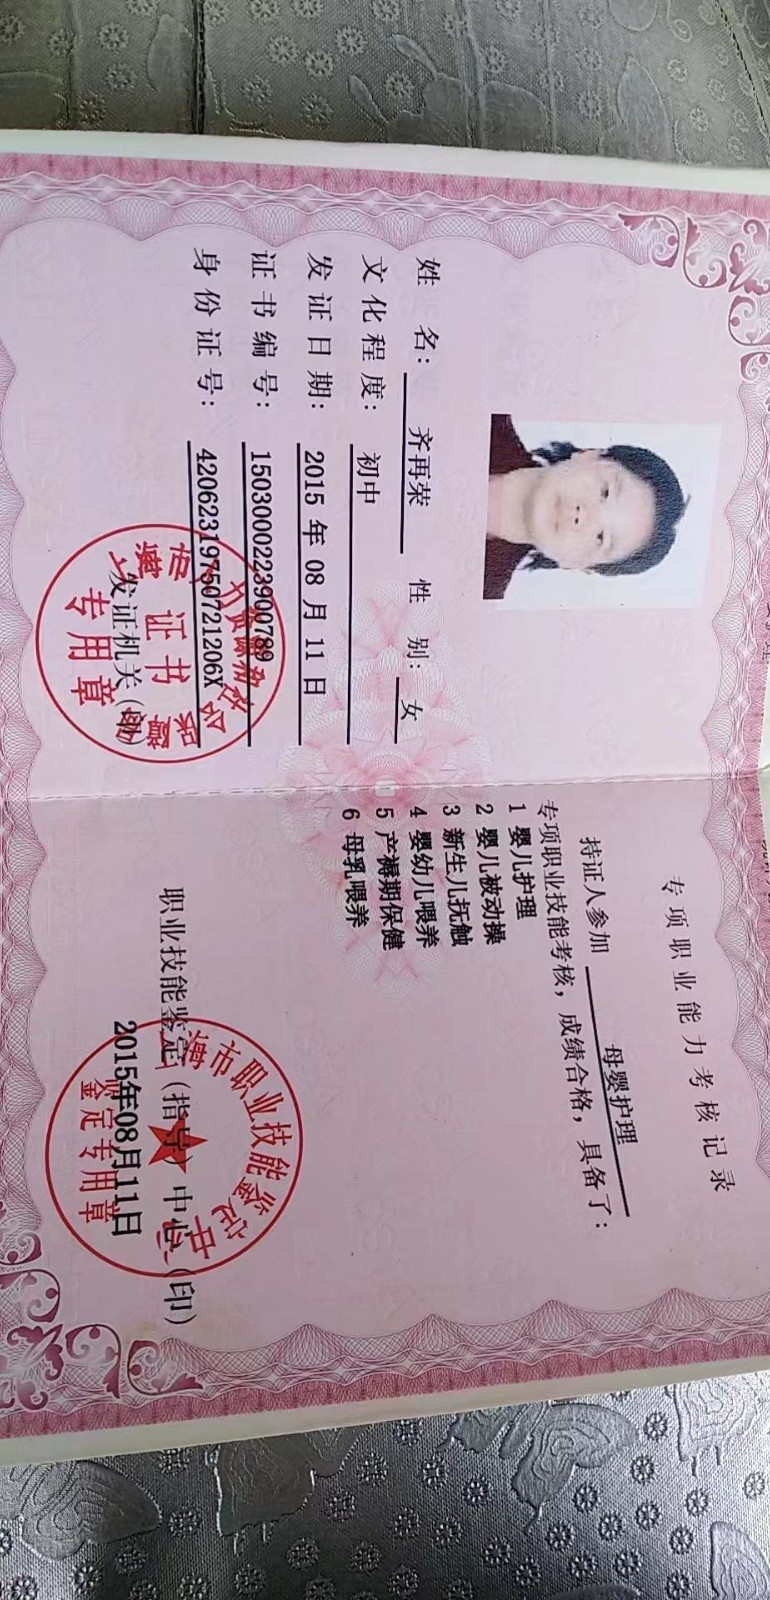 姓 名： 齐再荣 性 别： 女
文化程度： 初中
发证日期： 2015 年 08 月 11 日
证书编号： 1503000223900789
身份证号： 42062319750721206X
发证机关（印）
证书
专用章
专项职业能力考核记录
持证人参加 母婴护理
专项职业技能考核，成绩合格，具备了：
1 婴儿护理
2 婴儿被动操
3 新生儿抚触
4 婴幼儿喂养
5 产褥期保健
6 母乳喂养
职业技能鉴定（指导）中心（印）
2015年08月11日
上海市职业技能鉴定中心
鉴定专用章